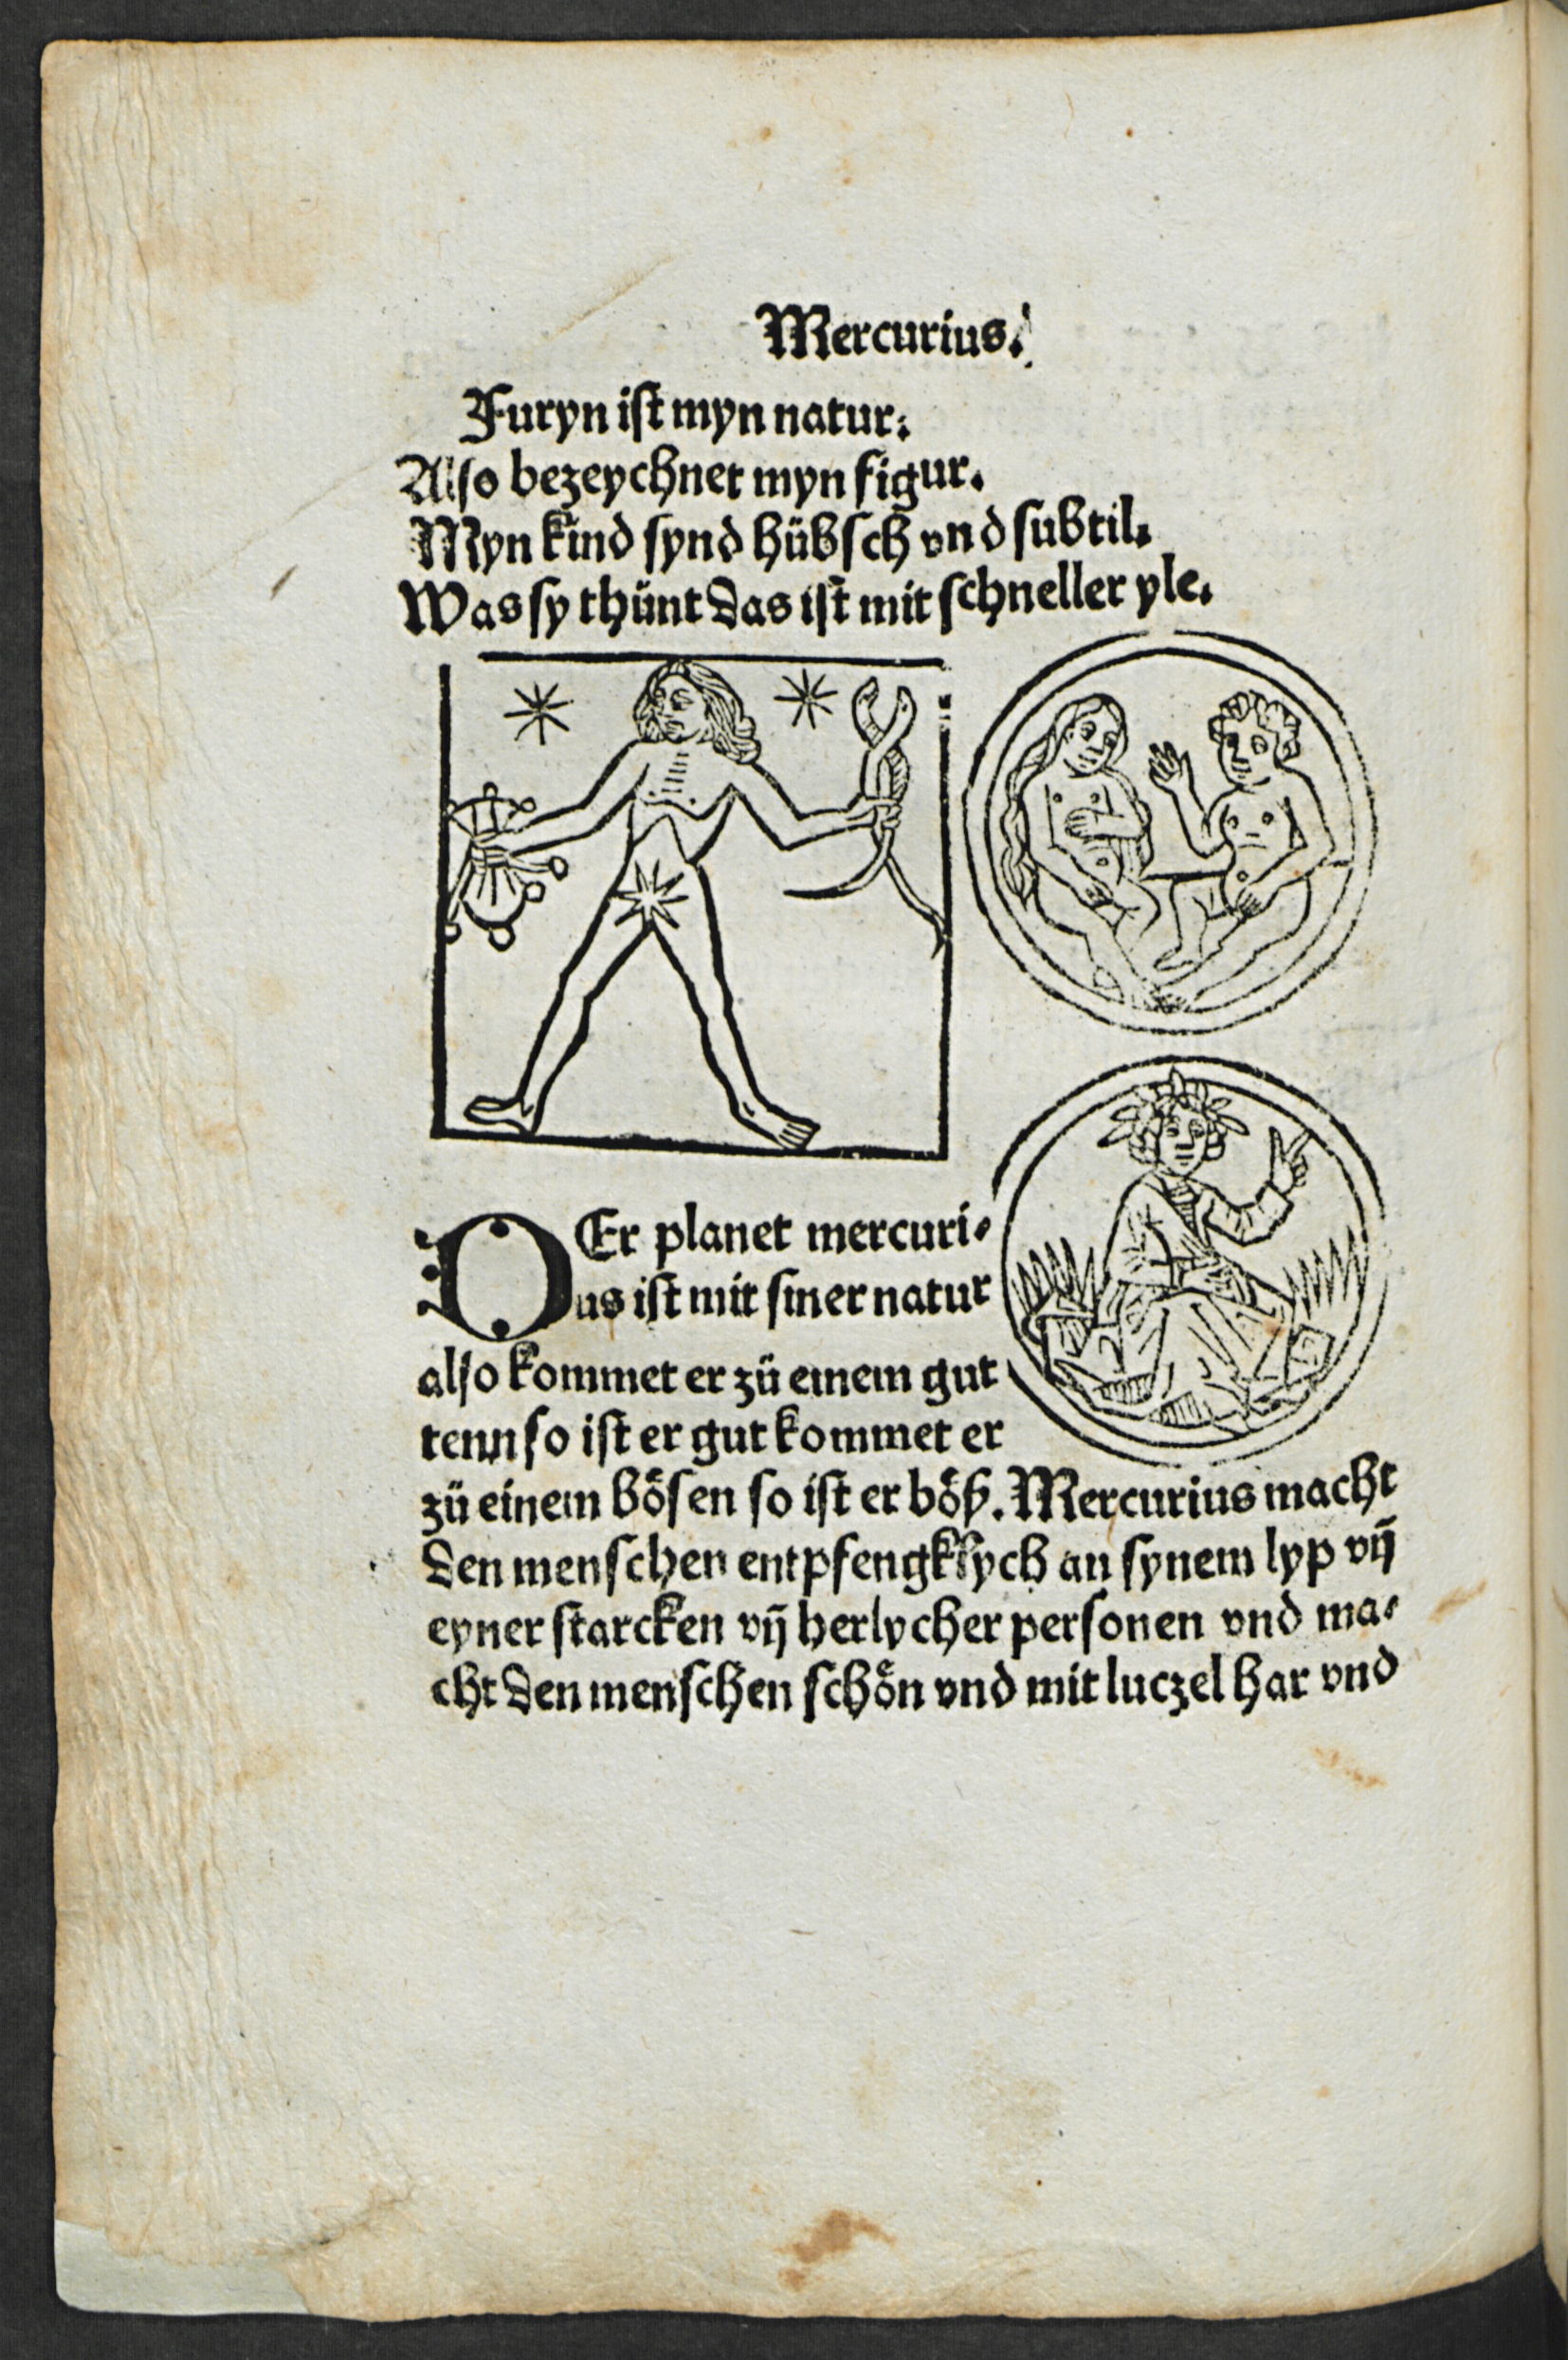 Mercurius.
Furyn ist myn natur.
Also bezeychnet myn figur.
Myn kind synd hübsch vnd subtil.
Was sy thünt das ist mit schneller yle.
DEr planet mercuri-
us ist mit siner natur
also kommet er zü einem gut
tenn so ist er gut kommet er
zü einem bösen so ist er böß. Mercurius macht
den menschen entpfengklych an synem lyp vn̄
eyner starcken vn̄ herlycher personen vnd ma-
cht den menschen schön vnd mit luczel har vnd